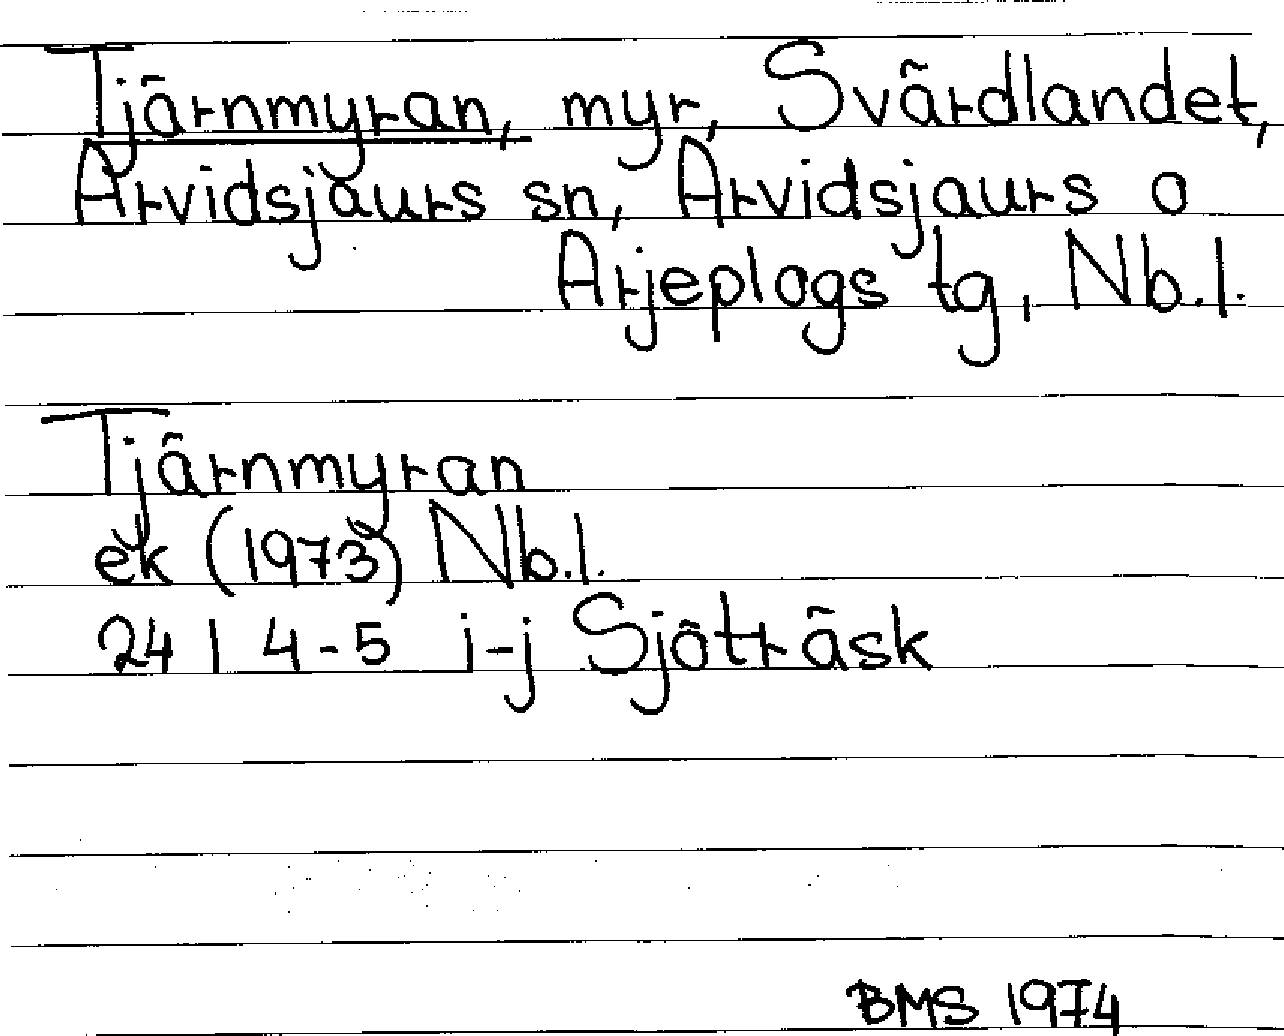 Tjärnmyran, myr, Svärdlandet,
Arvidsjaurs sn, Arvidsjaurs o
Arjeplogs tg, Nb.l.
Tjärnmyran
ek (1973) Nb.l.
24 I 4-5 i-j Sjöträsk
BMS 1974